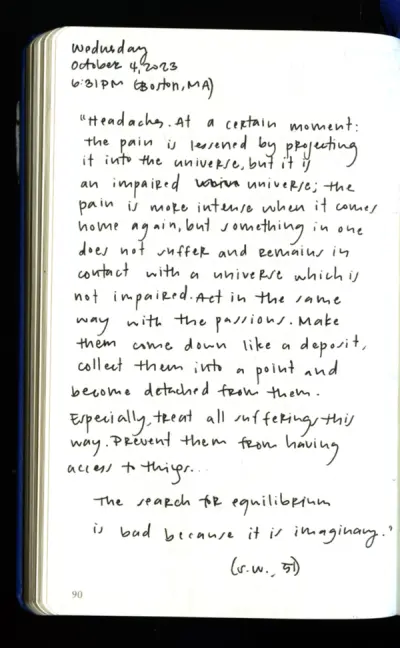 Wednesday
October 4, 2023
6:31 PM (Boston, MA)
"Headaches. At a certain moment:
the pain is lessened by projecting
it into the universe, but it is
an impaired universe; the
pain is more intense when it comes
home again, but something in one
does not suffer and remains in
contact with a universe which is
not impaired. Act in the same
way with the passions. Make
them come down like a deposit,
collect them into a point and
become detached from them.
Especially, treat all sufferings this
way. Prevent them from having
access to things...
The search for equilibrium
is bad because it is imaginary."
(S.W., 51)
90